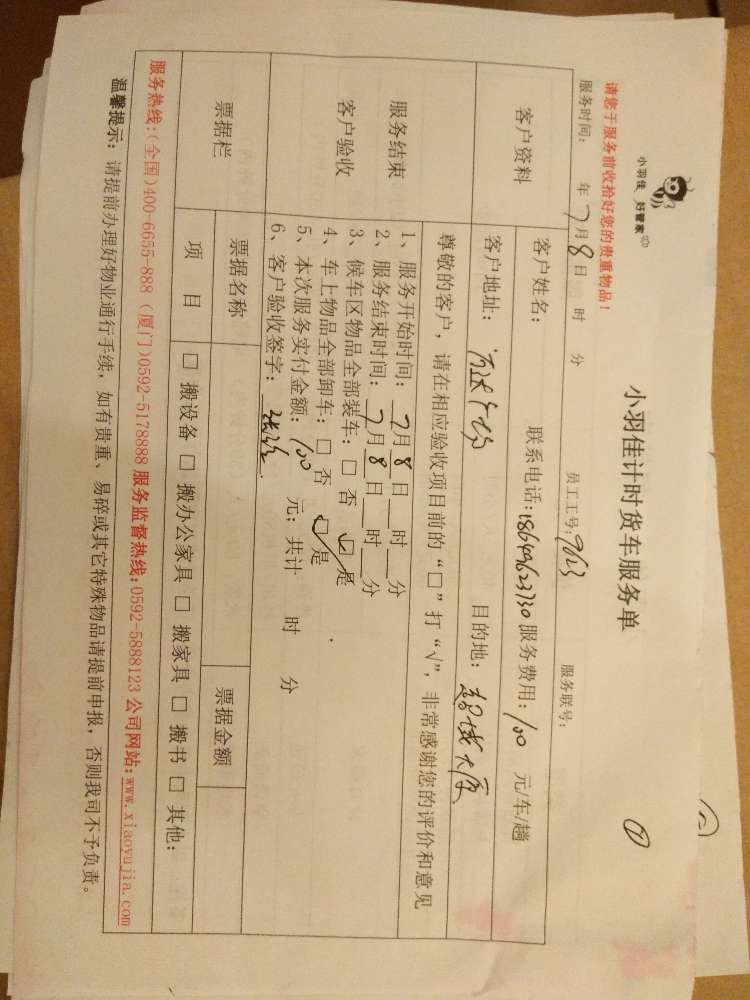 小羽佳 好管家
小羽佳计时货车服务单
①
请您于服务前收拾好您的贵重物品！
服务时间： 年 7月8日 时 分 员工工号：9623 服务联号：
客户资料
客户姓名： 联系电话：18649623730 服务费用：100 元/车/趟
客户地址： 目的地： 大厦
服务结束
客户验收
尊敬的客户，请在相应验收项目前的“□”打“√”，非常感谢您的评价和意见
1、服务开始时间：7月8日__时__分
2、服务结束时间：7月8日__时__分
3、候车区物品全部装车：□ 否 ☑ 是
4、车上物品全部卸车：□ 否 ☑ 是
5、本次服务实付金额：100 元；共计 时 分
6、客户验收签字：
票据栏
票据名称 票据金额
项 目 □ 搬设备 □ 搬办公家具 □ 搬家具 □ 搬书 □ 其他:
服务热线:(全国)400-6655-888 (厦门)0592-5178888 服务监督热线:0592-5888123 公司网站:www.xiaoyujia.com
温馨提示：请提前办理好物业通行手续，如有贵重、易碎或其它特殊物品请提前申报，否则我司不予负责。